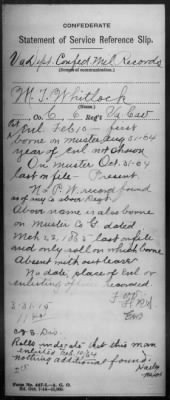 CONFEDERATE
Statement of Service Reference Slip.
Va Dept. Confed Mil Records
(Source of communication.)
W. T. Whitlock
(Name.)
, Co. C, 6 Reg't Va Cav
Enl Feb 10 — first
borne on muster Aug 31-64
year of enl not shown
On Muster Oct. 31-64
last on file — Present
No P. W. record found
as of any Co above Regt.
Above name is also borne
on Muster Co G dated
1865 last on file
and only roll on which borne
Absent without leave
No date, place of enl or
enlisting officer recorded
3-31-15
Rolls indicate that this man
enlisted Feb 10/64
nothing additional found.
Form No.